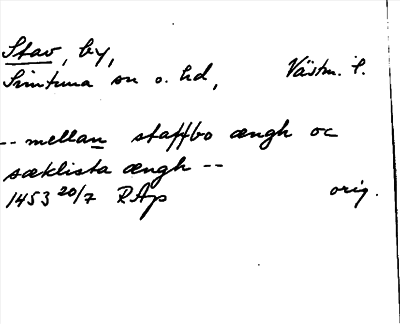 Stav, by,
Simtuna sn o. hd, Västm. l.
-- mellan staffbo ængh oc
sæklista ængh --
1453 20/7 RAp orig.